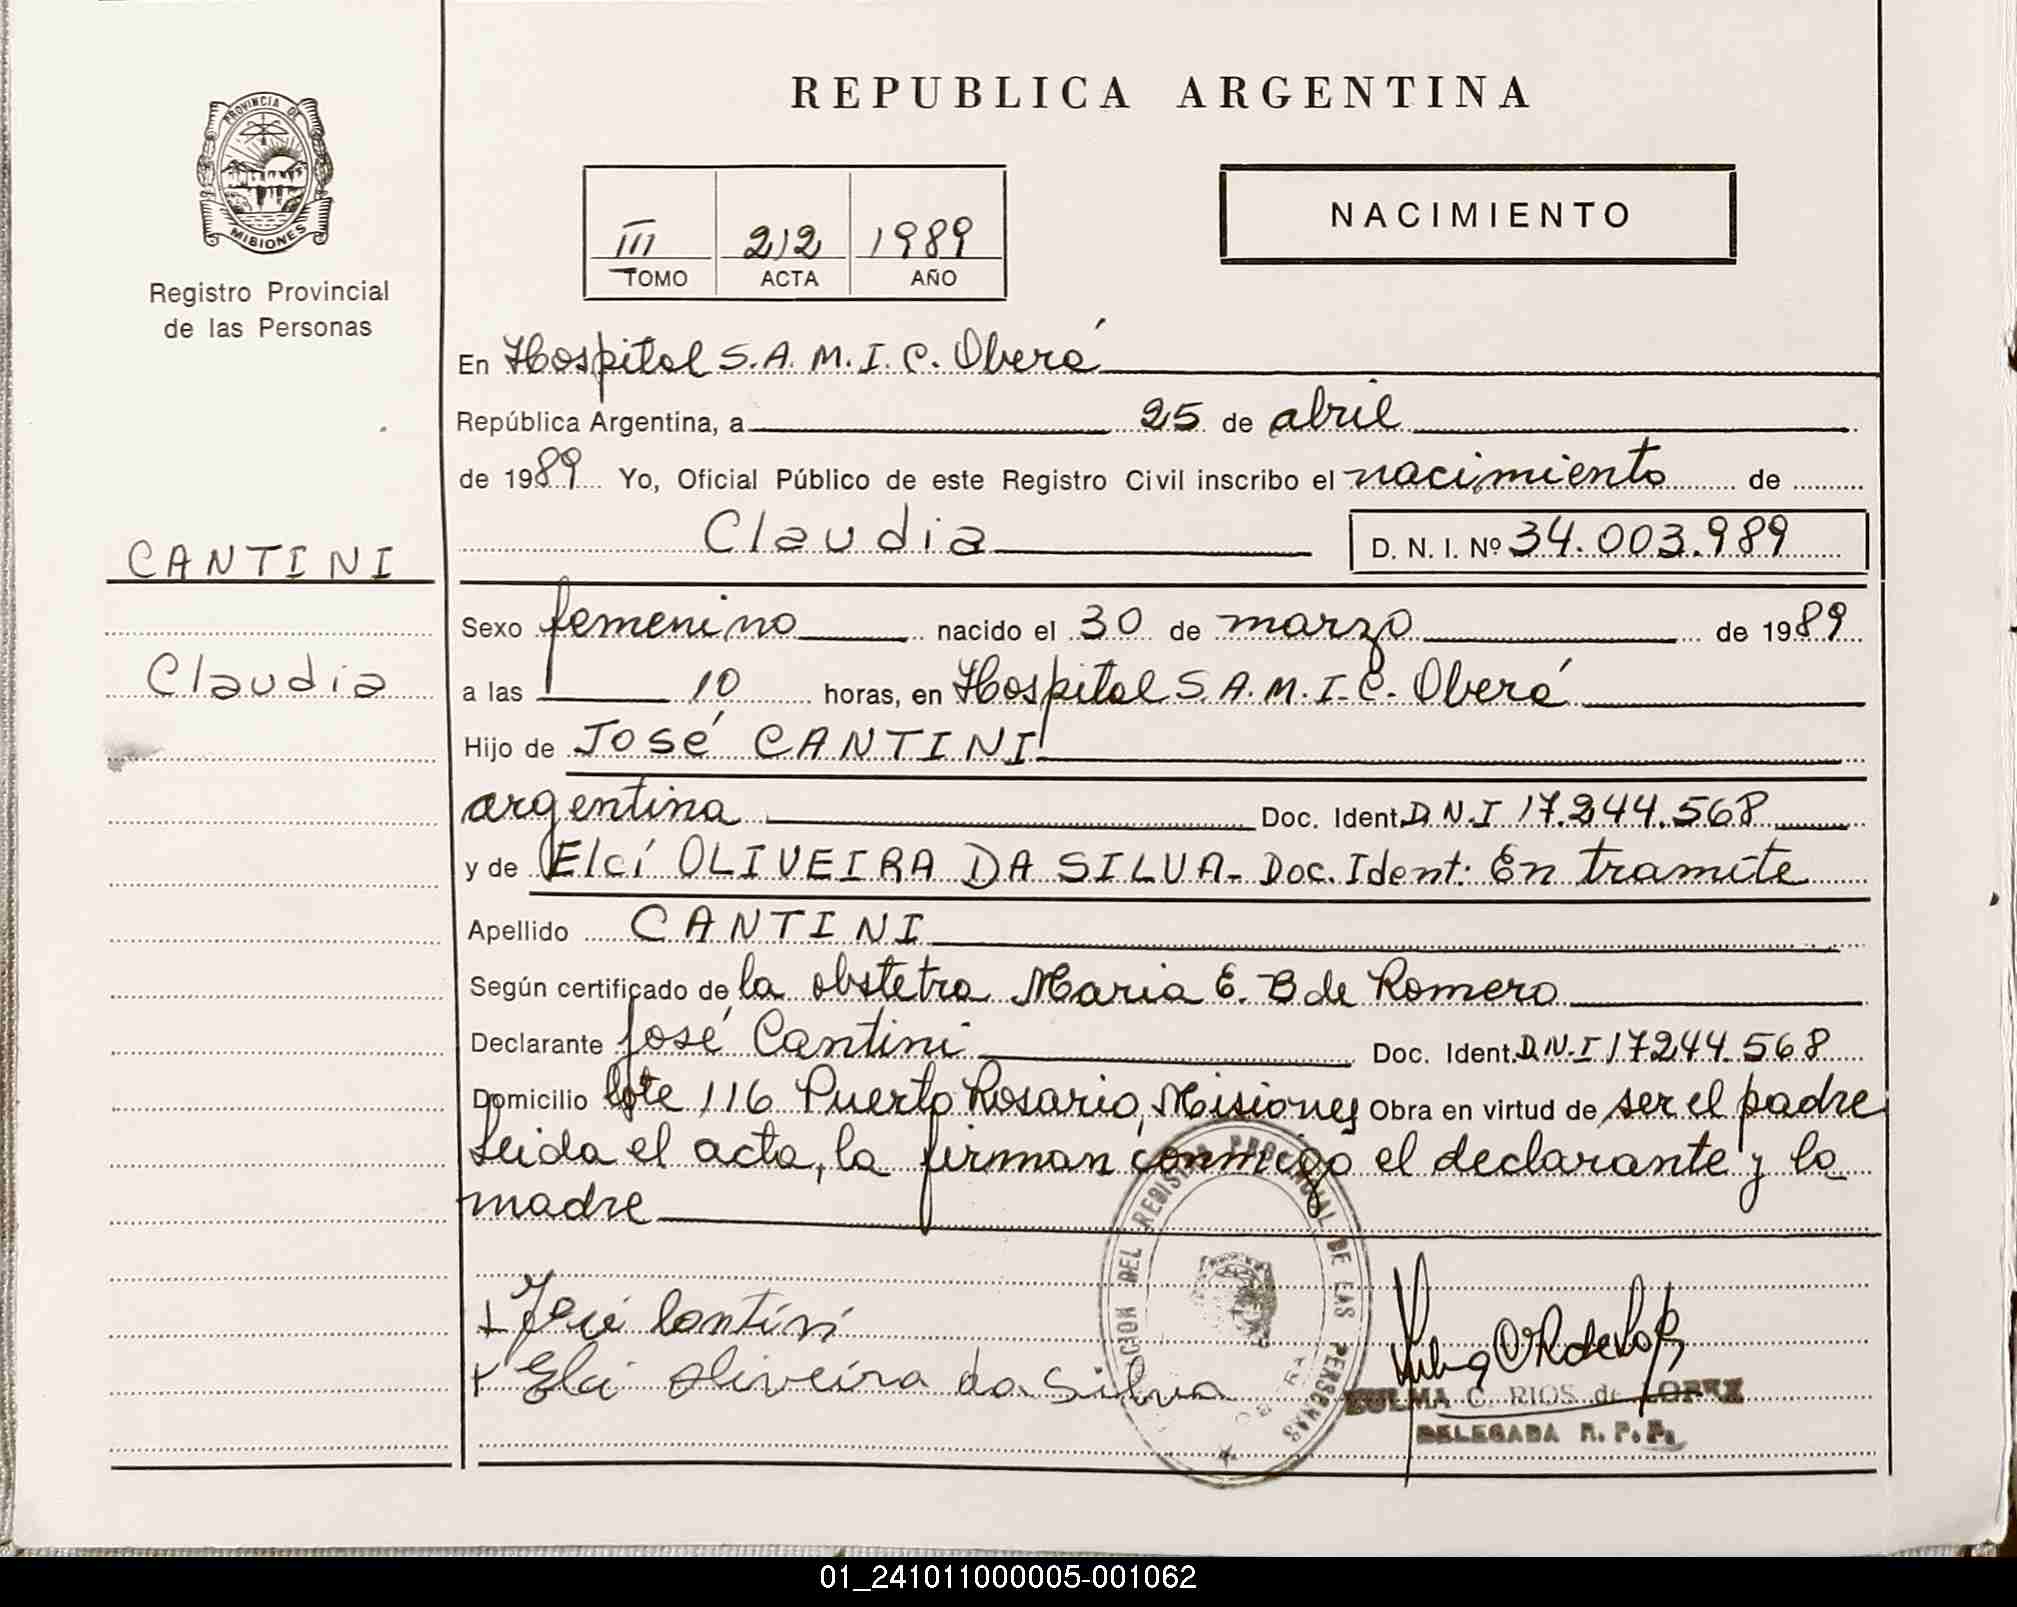 PROVINCIA DE
MISIONES
Registro Provincial
de las Personas
CANTINI
Claudia
REPUBLICA ARGENTINA
III 212 1989
TOMO ACTA AÑO
NACIMIENTO
En Hospital S.A.M.I.C. Oberá
República Argentina, a 25 de abril
de 1989 Yo, Oficial Público de este Registro Civil inscribo el nacimiento de
Claudia D. N. I. Nº 34.003.989
Sexo femenino nacido el 30 de marzo de 1989
a las 10 horas, en Hospital S.A.M.I.C. Oberá
Hijo de José CANTINI
argentina Doc. Ident. D.N.I 17.244.568
y de Elcí OLIVEIRA DA SILVA- Doc. Ident: En tramite
Apellido CANTINI
Según certificado de la obstetra Maria E. B de Romero
Declarante José Cantini Doc. Ident. D.N.I 17244.568
Domicilio lote 116 Puerto Rosario, Misiones Obra en virtud de ser el padre
Leida el acta, la firman conmigo el declarante y la
madre
José Cantini
Elci Oliveira da Silva
DEL REGISTRO PROVINCIAL DE LAS PERSONAS
ZULMA C. RIOS de LOPEZ
DELEGADA R. P. P.
01_241011000005-001062